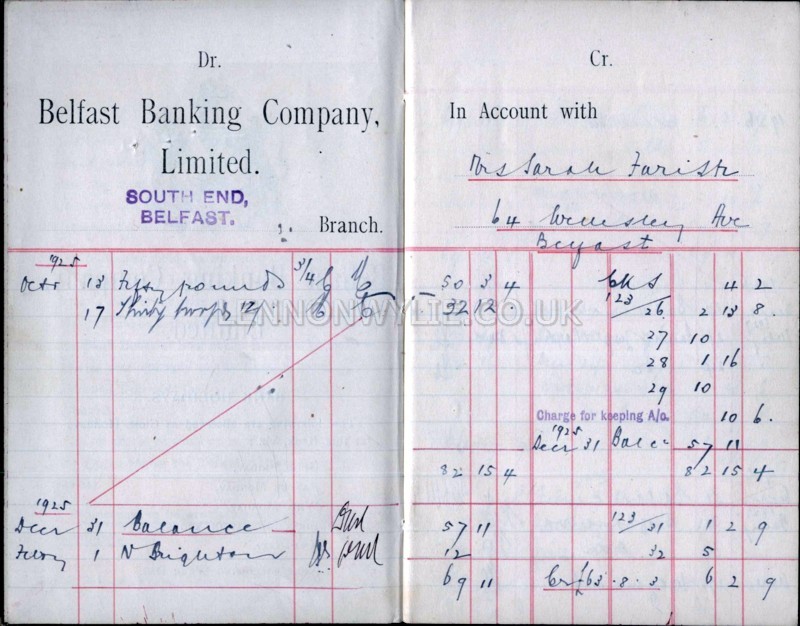 Dr.
Belfast Banking Company,
Limited.
SOUTH END,
BELFAST.
Branch.
1925
Octr 13 Fifty pounds 3/4
17 Thirty two pds 12/
LENNONWYLIE.CO.UK
1925
Decr 31 Balance
Feby 1 N Brighton
Cr.
In Account with
Mrs Sarah Farish
64 Wellesley Ave
Belfast
50 3 4 Cks 4 2
32 12 . 123/26 2 13 8
27 10
28 1 16
29 10
Charge for keeping A/o. 10 6.
1925
Decr 31 Balce 57 11
82 15 4 82 15 4
57 11 123/31 1 2 9
12 32 5
69 11 Cr £63 . 8 . 3 6 2 9